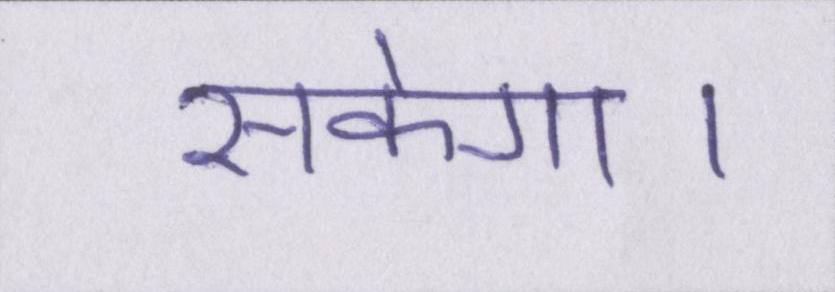 सकेगा।